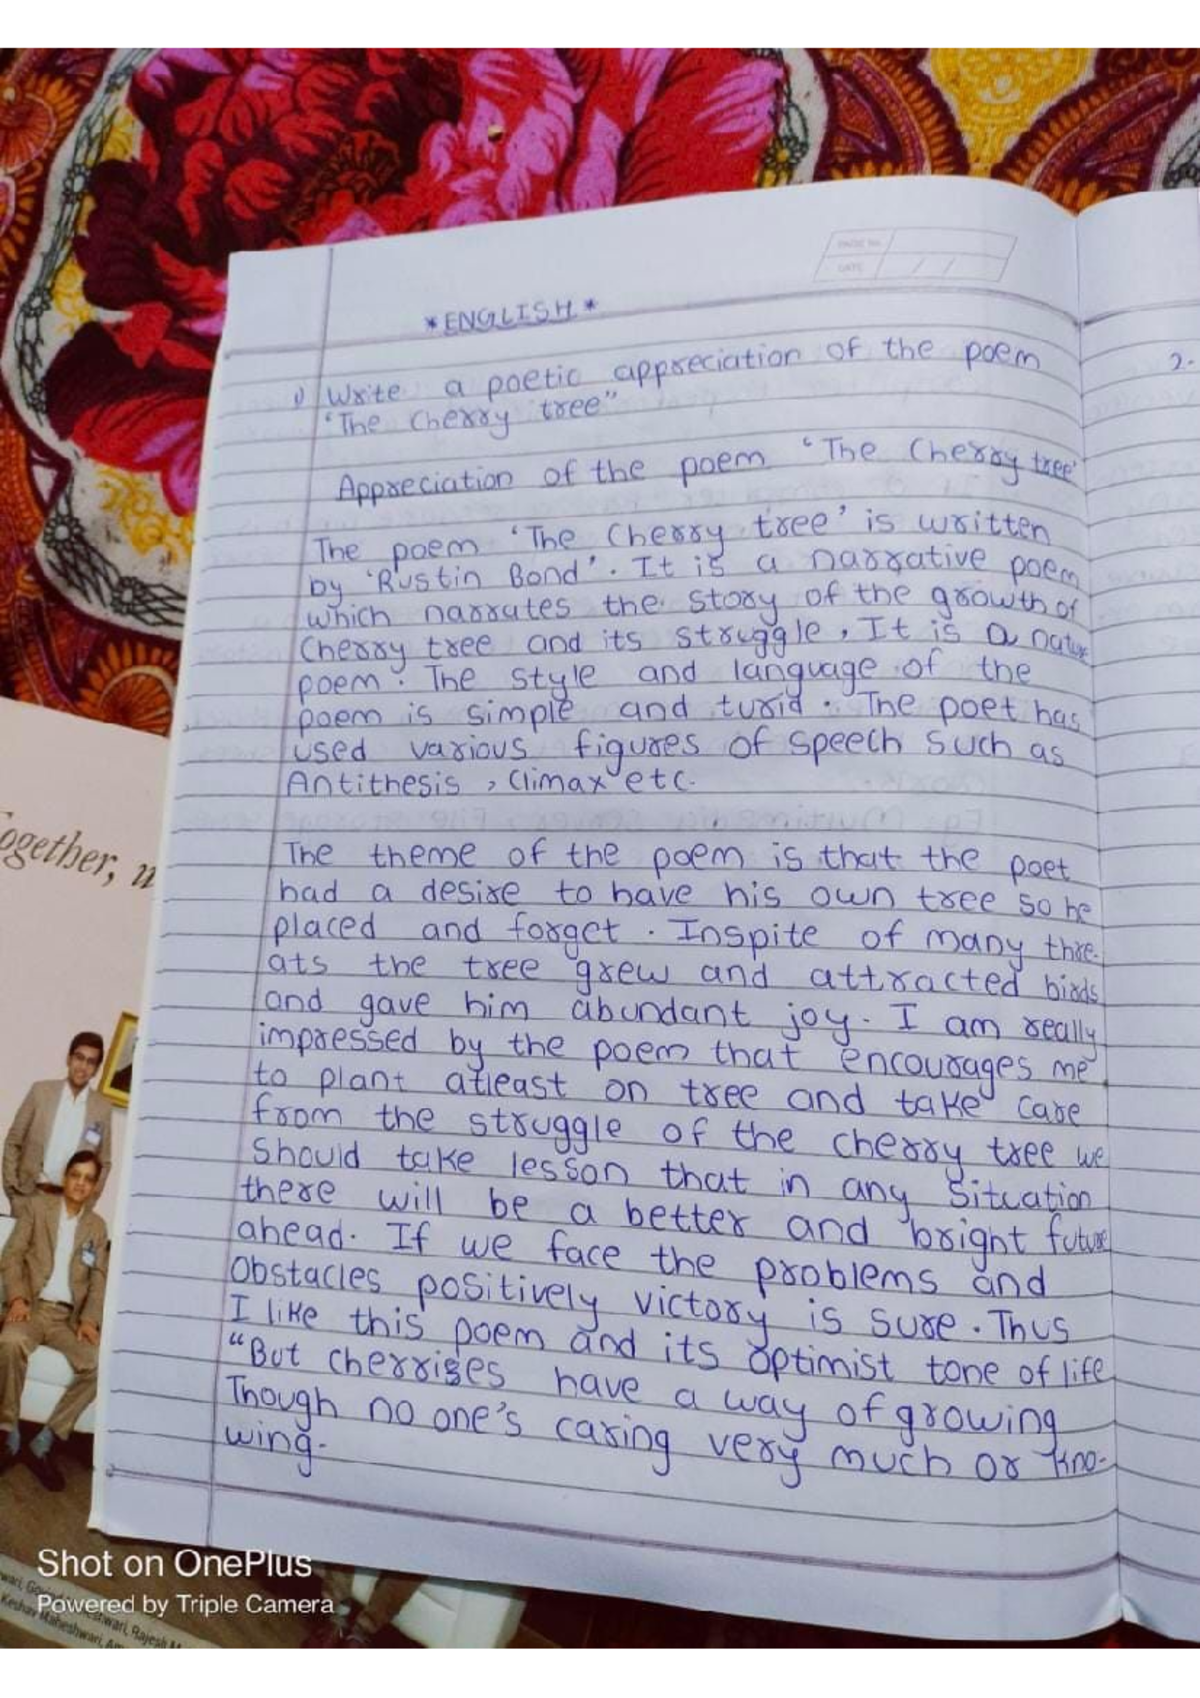 PAGE No.
DATE
*ENGLISH*
2-
1) Write a poetic appreciation of the poem
'The Cherry tree"
Appreciation of the poem 'The Cherry tree'
The poem 'The Cherry tree' is written
by 'Rustin Bond'. It is a narrative poem
which narrates the story of the growth of
Cherry tree and its struggle, It is a nature
poem. The style and language of the
poem is simple and turid. The poet has
used various figures of speech such as
Antithesis, Climax etc.
The theme of the poem is that the poet
had a desire to have his own tree so he
placed and forget. Inspite of many thre-
ats the tree grew and attracted birds
and gave him abundant joy. I am really
impressed by the poem that encourages me
to plant atleast on tree and take care
from the struggle of the cherry tree we
should take lesson that in any situation
there will be a better and bright future
ahead. If we face the problems and
obstacles positively victory is sure. Thus
I like this poem and its optimist tone of life
"But cherrises have a way of growing
Though no one's caring very much or kno-
wing.
ogether,
Shot on OnePlus
Powered by Triple Camera